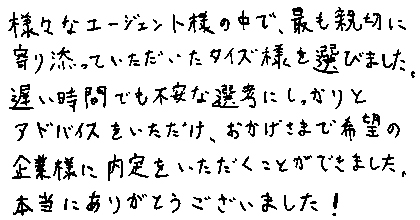 様々なエージェント様の中で、最も親切に
寄り添っていただいたタイズ様を選びました。
遅い時間でも不安な選考にしっかりと
アドバイスをいただけ、おかげさまで希望の
企業様に内定をいただくことができました。
本当にありがとうございました!